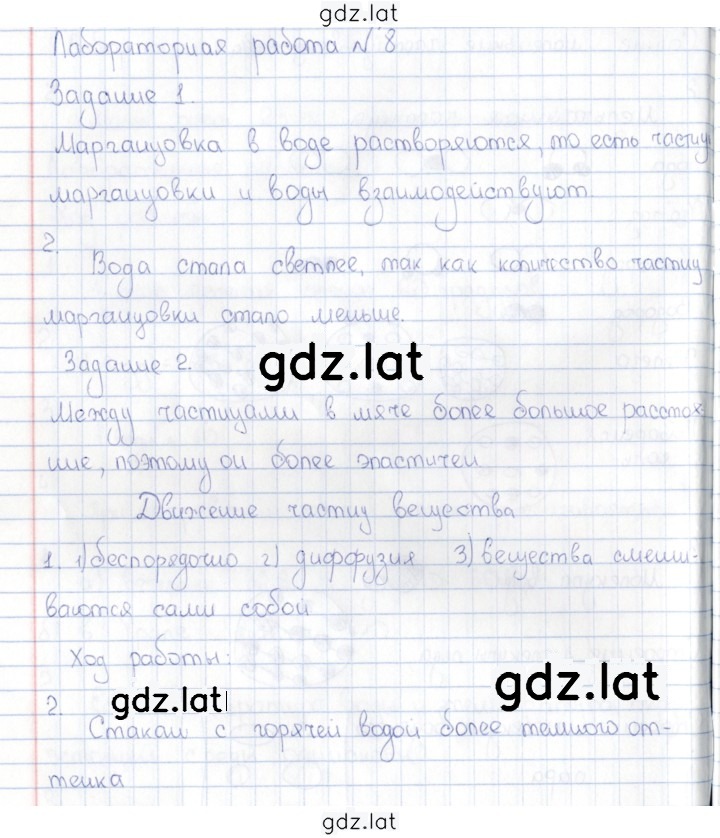 gdz.lat
Лабораторная работа №8
Задание 1.
Марганцовка в воде растворяются, то есть частиц
марганцовки и воды взаимодействуют
2.
Вода стала светлее, так как количество частиц
марганцовки стало меньше.
Задание 2.
gdz.lat
Между частицами в мяче более большое расстоя-
ние, поэтому он более эластичен
Движение частиц вещества
1. 1) беспорядочно 2) диффузия 3) вещества смеши-
ваются сами собой
Ход работы:
gdz.lat
gdz.lat
2.
Стакан с горячей водой более темного от-
тенка
gdz.lat